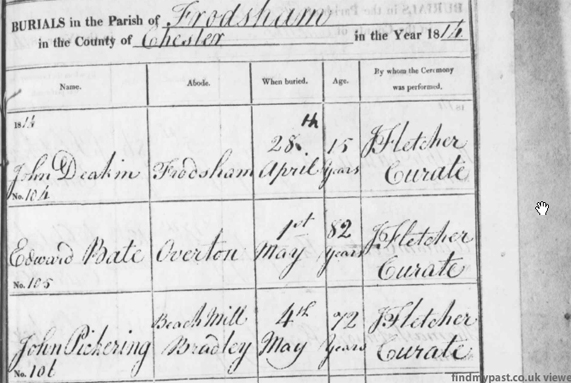 BURIALS in the Parish of Frodsham
in the County of Chester in the Year 1814
Name. Abode. When buried. Age. By whom the Ceremony was performed.
1814
John Deakin Frodsham 28th April 15 years J Fletcher Curate
No. 104
Edward Bate Overton 1st May 82 years J Fletcher Curate
No. 105
John Pickering Beach Mill Bradley 4th May 72 years J Fletcher Curate
No. 106
findmypast.co.uk viewe